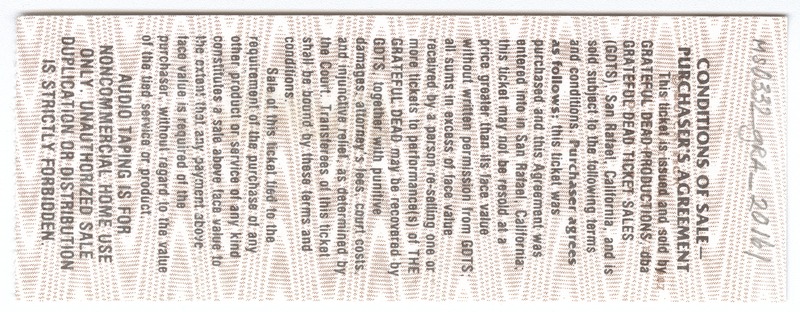 MS0332_GRA_20161
CONDITIONS OF SALE—
PURCHASER'S AGREEMENT
This ticket is issued and sold by
GRATEFUL DEAD PRODUCTIONS, dba
GRATEFUL DEAD TICKET SALES
(GDTS), San Rafael, California, and is
sold subject to the following terms
and conditions. Purchaser agrees
as follows: this ticket was
purchased and this Agreement was
entered into in San Rafael, California;
this ticket may not be resold at a
price greater than its face value
without written permission from GDTS;
all sums in excess of face value
received by a person re-selling one or
more tickets to performance(s) of THE
GRATEFUL DEAD may be recovered by
GDTS, together with punitive
damages, attorney's fees, court costs,
and injunctive relief, as determined by
the Court. Transferees of this ticket
shall be bound by these terms and
conditions.
Sale of this ticket tied to the
requirement of the purchase of any
other product or service of any kind
constitutes a sale above face value to
the extent that any payment above
face value is required of the
purchaser, without regard to the value
of the tied service or product.
AUDIO TAPING IS FOR
NONCOMMERCIAL HOME USE
ONLY. UNAUTHORIZED SALE,
DUPLICATION OR DISTRIBUTION
IS STRICTLY FORBIDDEN.